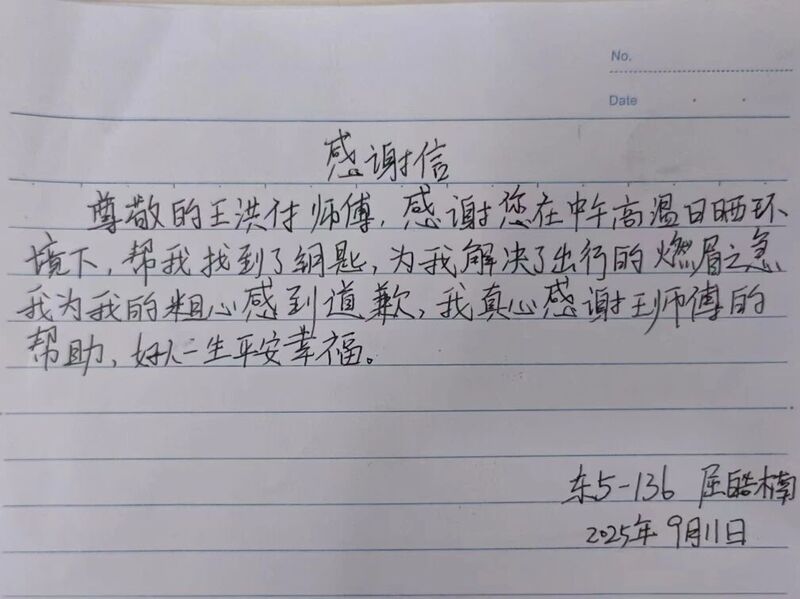 No.
Date
感谢信
尊敬的王洪付师傅，感谢您在中午高温日晒环
境下，帮我找到了钥匙，为我解决了出行的燃眉之急
我为我的粗心感到道歉，我真心感谢王师傅的
帮助，好人一生平安幸福。
东5-136 屈皓楠
2025年9月11日